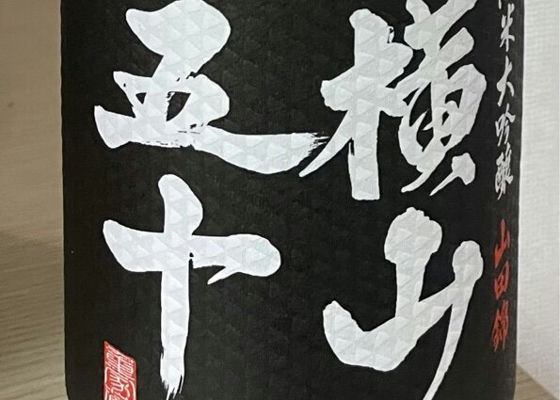 米大吟醸 山田錦
横山
五十